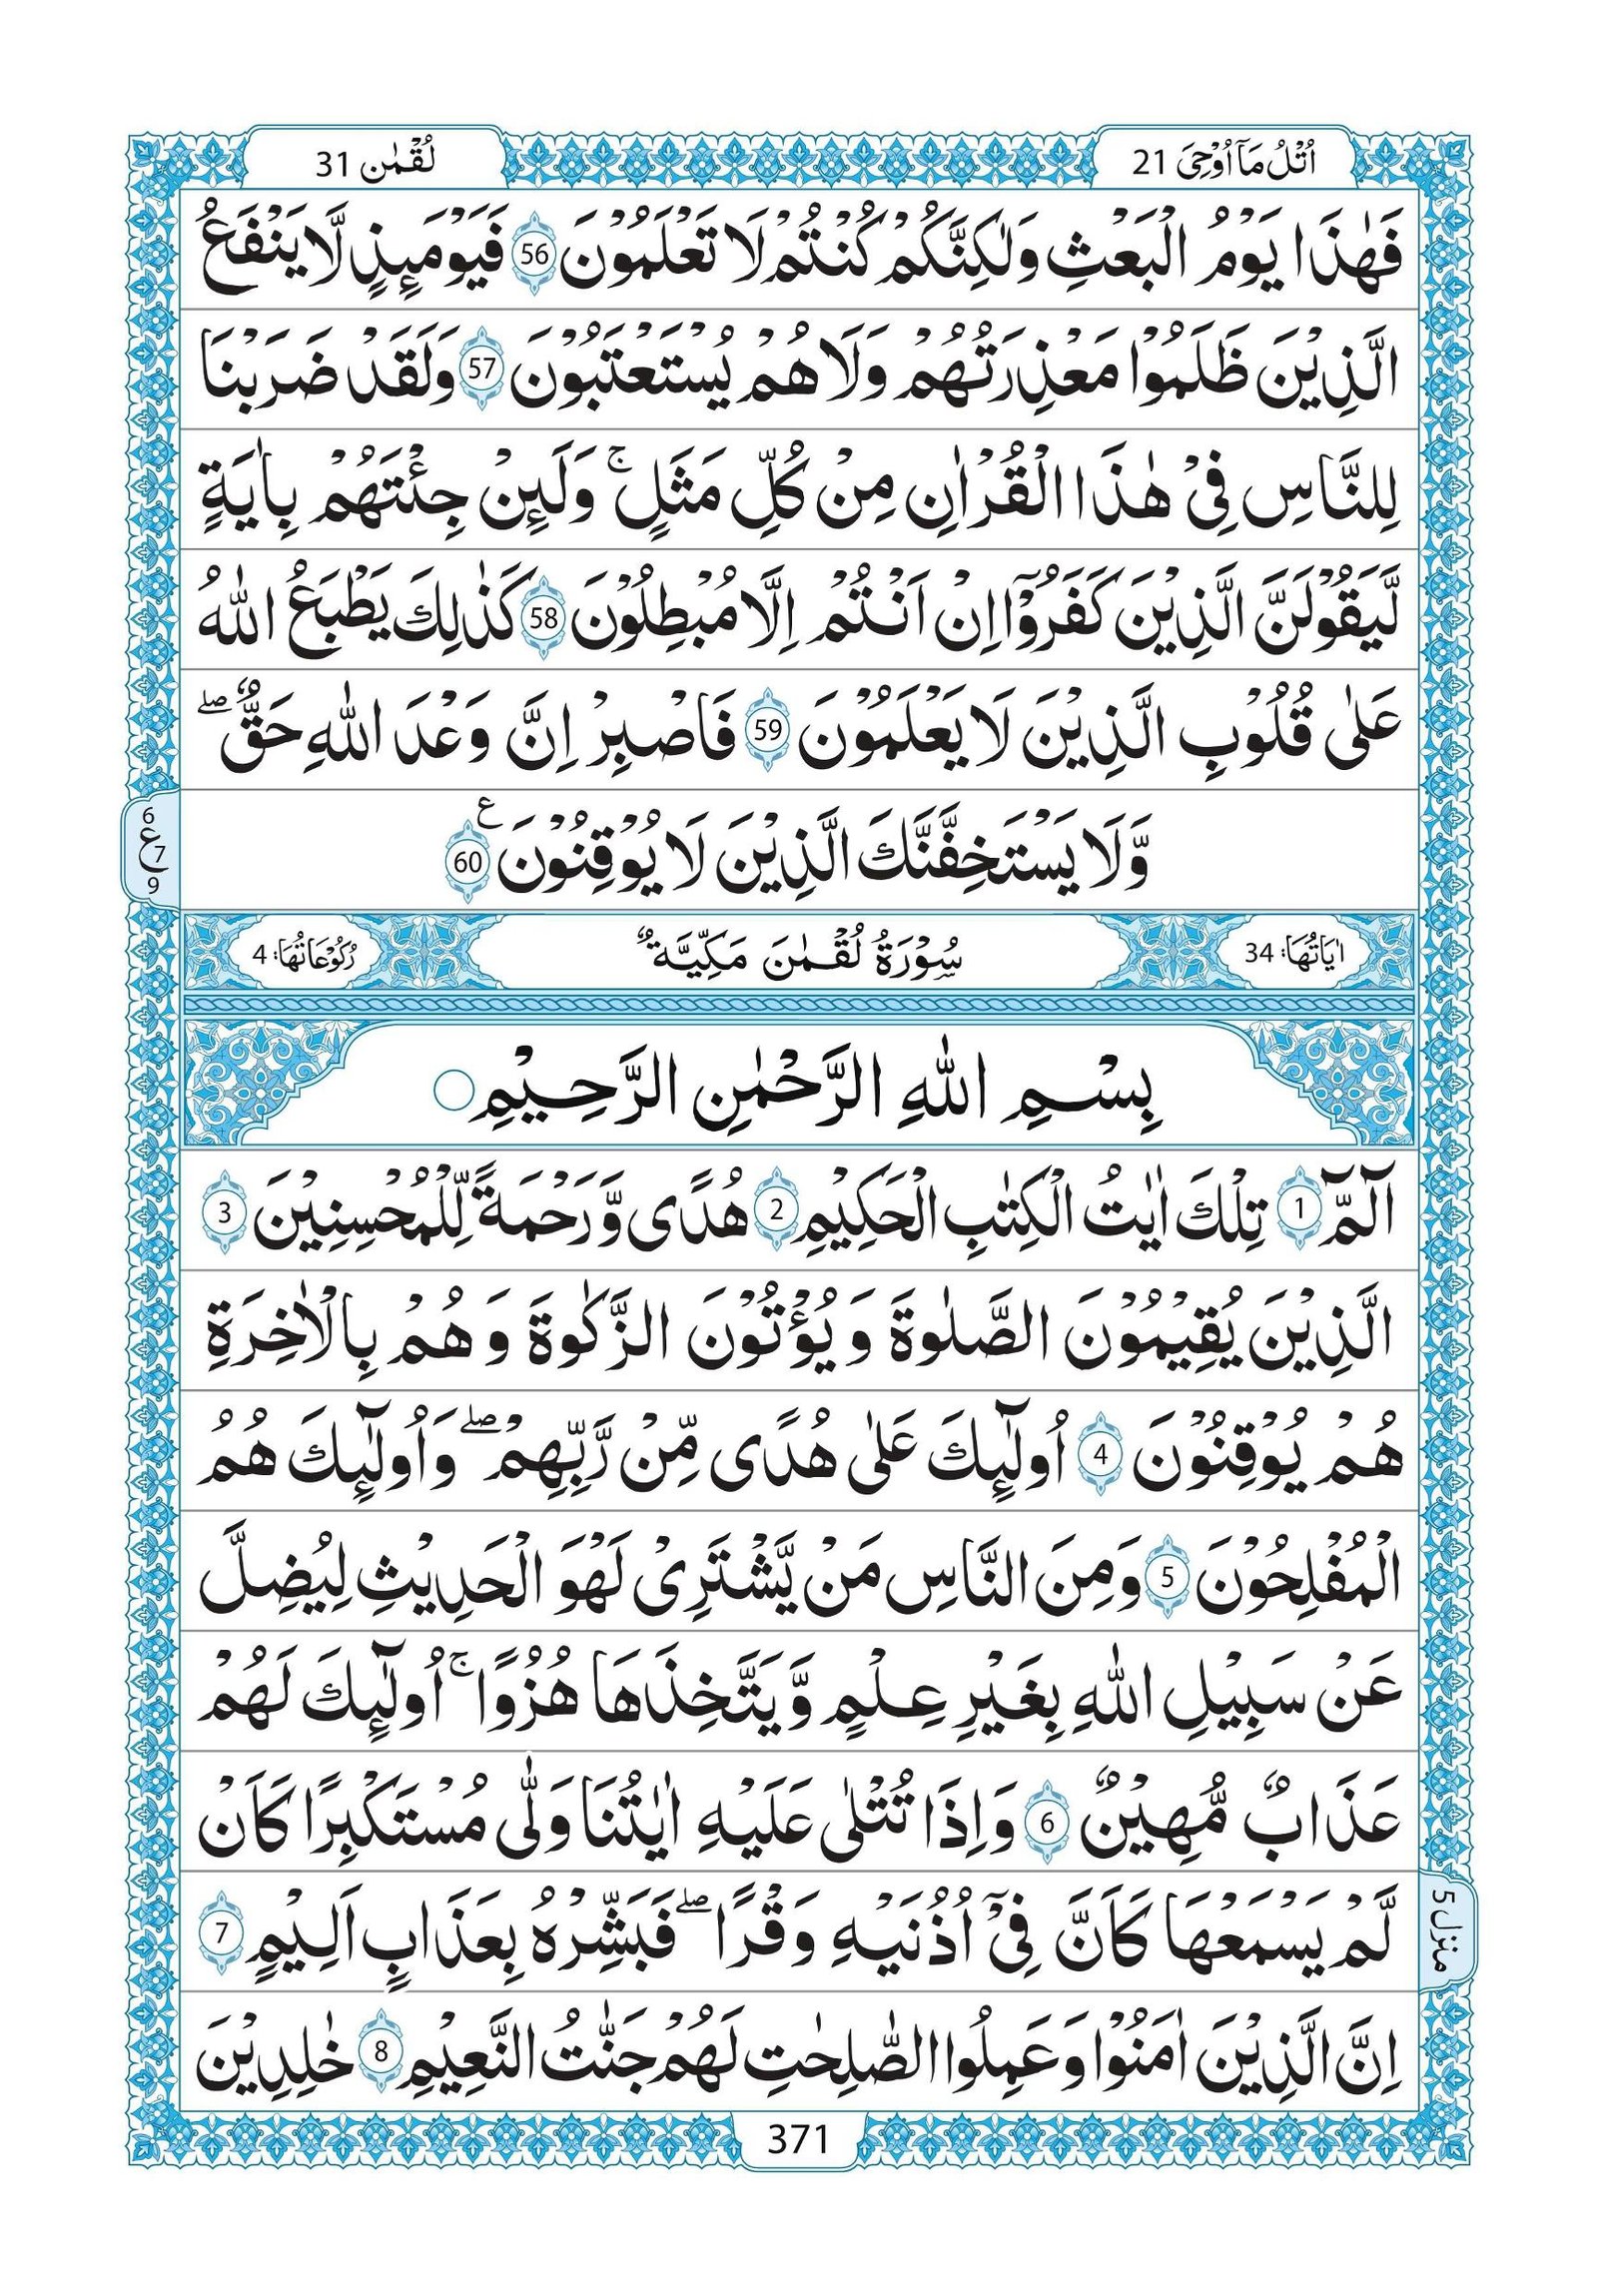 اُتْلُ مَاۤ اُوْحِیَ 21
لُقْمٰن 31
فَهٰذَا یَوْمُ الْبَعْثِ وَلٰكِنَّكُمْ كُنْتُمْ لَا تَعْلَمُوْنَ 56 فَیَوْمَىِٕذٍ لَّا یَنْفَعُ
الَّذِیْنَ ظَلَمُوْا مَعْذِرَتُهُمْ وَلَا هُمْ یُسْتَعْتَبُوْنَ 57 وَلَقَدْ ضَرَبْنَا
لِلنَّاسِ فِیْ هٰذَا الْقُرْاٰنِ مِنْ كُلِّ مَثَلٍ ۚ وَلَىِٕنْ جِئْتَهُمْ بِاٰیَةٍ
لَّیَقُوْلَنَّ الَّذِیْنَ كَفَرُوْۤا اِنْ اَنْتُمْ اِلَّا مُبْطِلُوْنَ 58 كَذٰلِكَ یَطْبَعُ اللّٰهُ
عَلٰی قُلُوْبِ الَّذِیْنَ لَا یَعْلَمُوْنَ 59 فَاصْبِرْ اِنَّ وَعْدَ اللّٰهِ حَقٌّ ۖ
وَّلَا یَسْتَخِفَّنَّكَ الَّذِیْنَ لَا یُوْقِنُوْنَ ع 60
6
ع 7
9
اٰیَاتُهَا: 34
سُوْرَةُ لُقْمٰنَ مَكِّیَّةٌ
رُكُوْعَاتُهَا: 4
بِسْمِ اللّٰهِ الرَّحْمٰنِ الرَّحِیْمِ
الٓمّٓ 1 تِلْكَ اٰیٰتُ الْكِتٰبِ الْحَكِیْمِ 2 هُدًی وَّرَحْمَةً لِّلْمُحْسِنِیْنَ 3
الَّذِیْنَ یُقِیْمُوْنَ الصَّلٰوةَ وَیُؤْتُوْنَ الزَّكٰوةَ وَهُمْ بِالْاٰخِرَةِ
هُمْ یُوْقِنُوْنَ 4 اُولٰٓىِٕكَ عَلٰی هُدًی مِّنْ رَّبِّهِمْ ۖ وَاُولٰٓىِٕكَ هُمُ
الْمُفْلِحُوْنَ 5 وَمِنَ النَّاسِ مَنْ یَّشْتَرِیْ لَهْوَ الْحَدِیْثِ لِیُضِلَّ
عَنْ سَبِیْلِ اللّٰهِ بِغَیْرِ عِلْمٍ وَّیَتَّخِذَهَا هُزُوًا ۚ اُولٰٓىِٕكَ لَهُمْ
عَذَابٌ مُّهِیْنٌ 6 وَاِذَا تُتْلٰی عَلَیْهِ اٰیٰتُنَا وَلّٰی مُسْتَكْبِرًا كَاَنْ
لَّمْ یَسْمَعْهَا كَاَنَّ فِیْۤ اُذُنَیْهِ وَقْرًا ۖ فَبَشِّرْهُ بِعَذَابٍ اَلِیْمٍ 7
منزل 5
اِنَّ الَّذِیْنَ اٰمَنُوْا وَعَمِلُوا الصّٰلِحٰتِ لَهُمْ جَنّٰتُ النَّعِیْمِ 8 خٰلِدِیْنَ
371